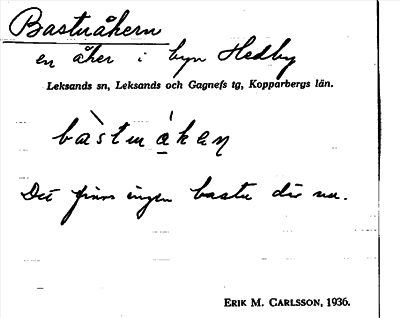 Bastuåkern
en åker i byn Hedby
Leksands sn, Leksands och Gagnefs tg, Kopparbergs län.
bàstuákeṇ
Det finns ingen bastu där nu.
ERIK M. CARLSSON, 1936.